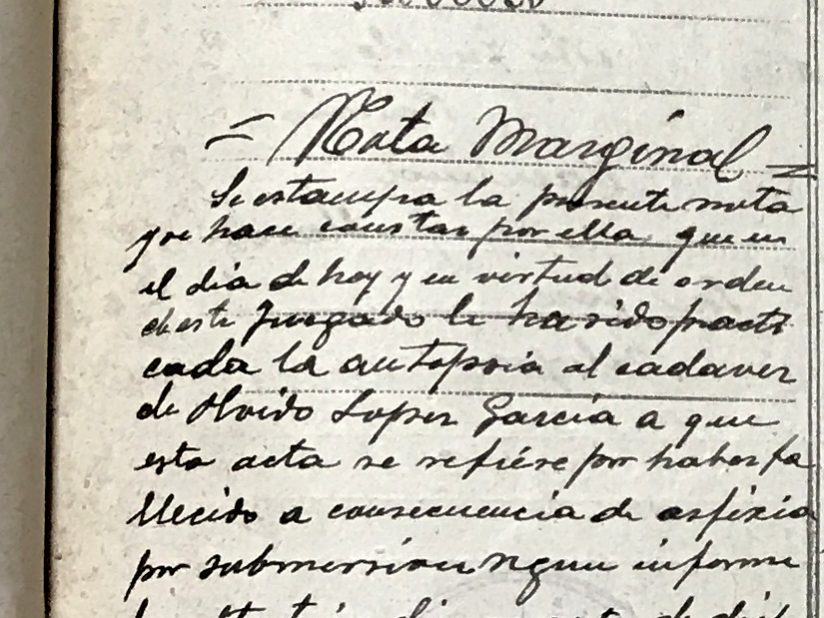 = Nota Marginal =
Se estampa la presente nota
y se hace constar por ella que en
el dia de hoy y en virtud de orden
de este Juzgado le ha sido practi
cada la autopsia al cadaver
de Olvido Lopez Garcia a que
esta acta se refiere por haber fa
llecido a consecuencia de asfixia
por submersion segun informe